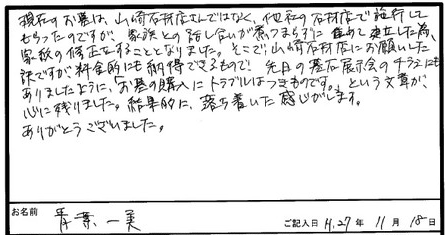 現在のお墓は、山崎石材店さんではなく、他社の石材店で施行して
もらったのですが、家族との話し合いが煮つまらずに 建立した為、
家族の修正をすることとなりました。そこで山崎石材店にお願いした
訳ですが料金的にも納得できるもので 先日の墓石展示会のチラシにも
ありましたように、「お墓の購入にトラブルはつきものです。」という文章が、
心に残りました。結果的に、落ち着いた感じがします。
ありがとうございました。
お名前 青葉 一美 ご記入日 H.27年 11月 18日